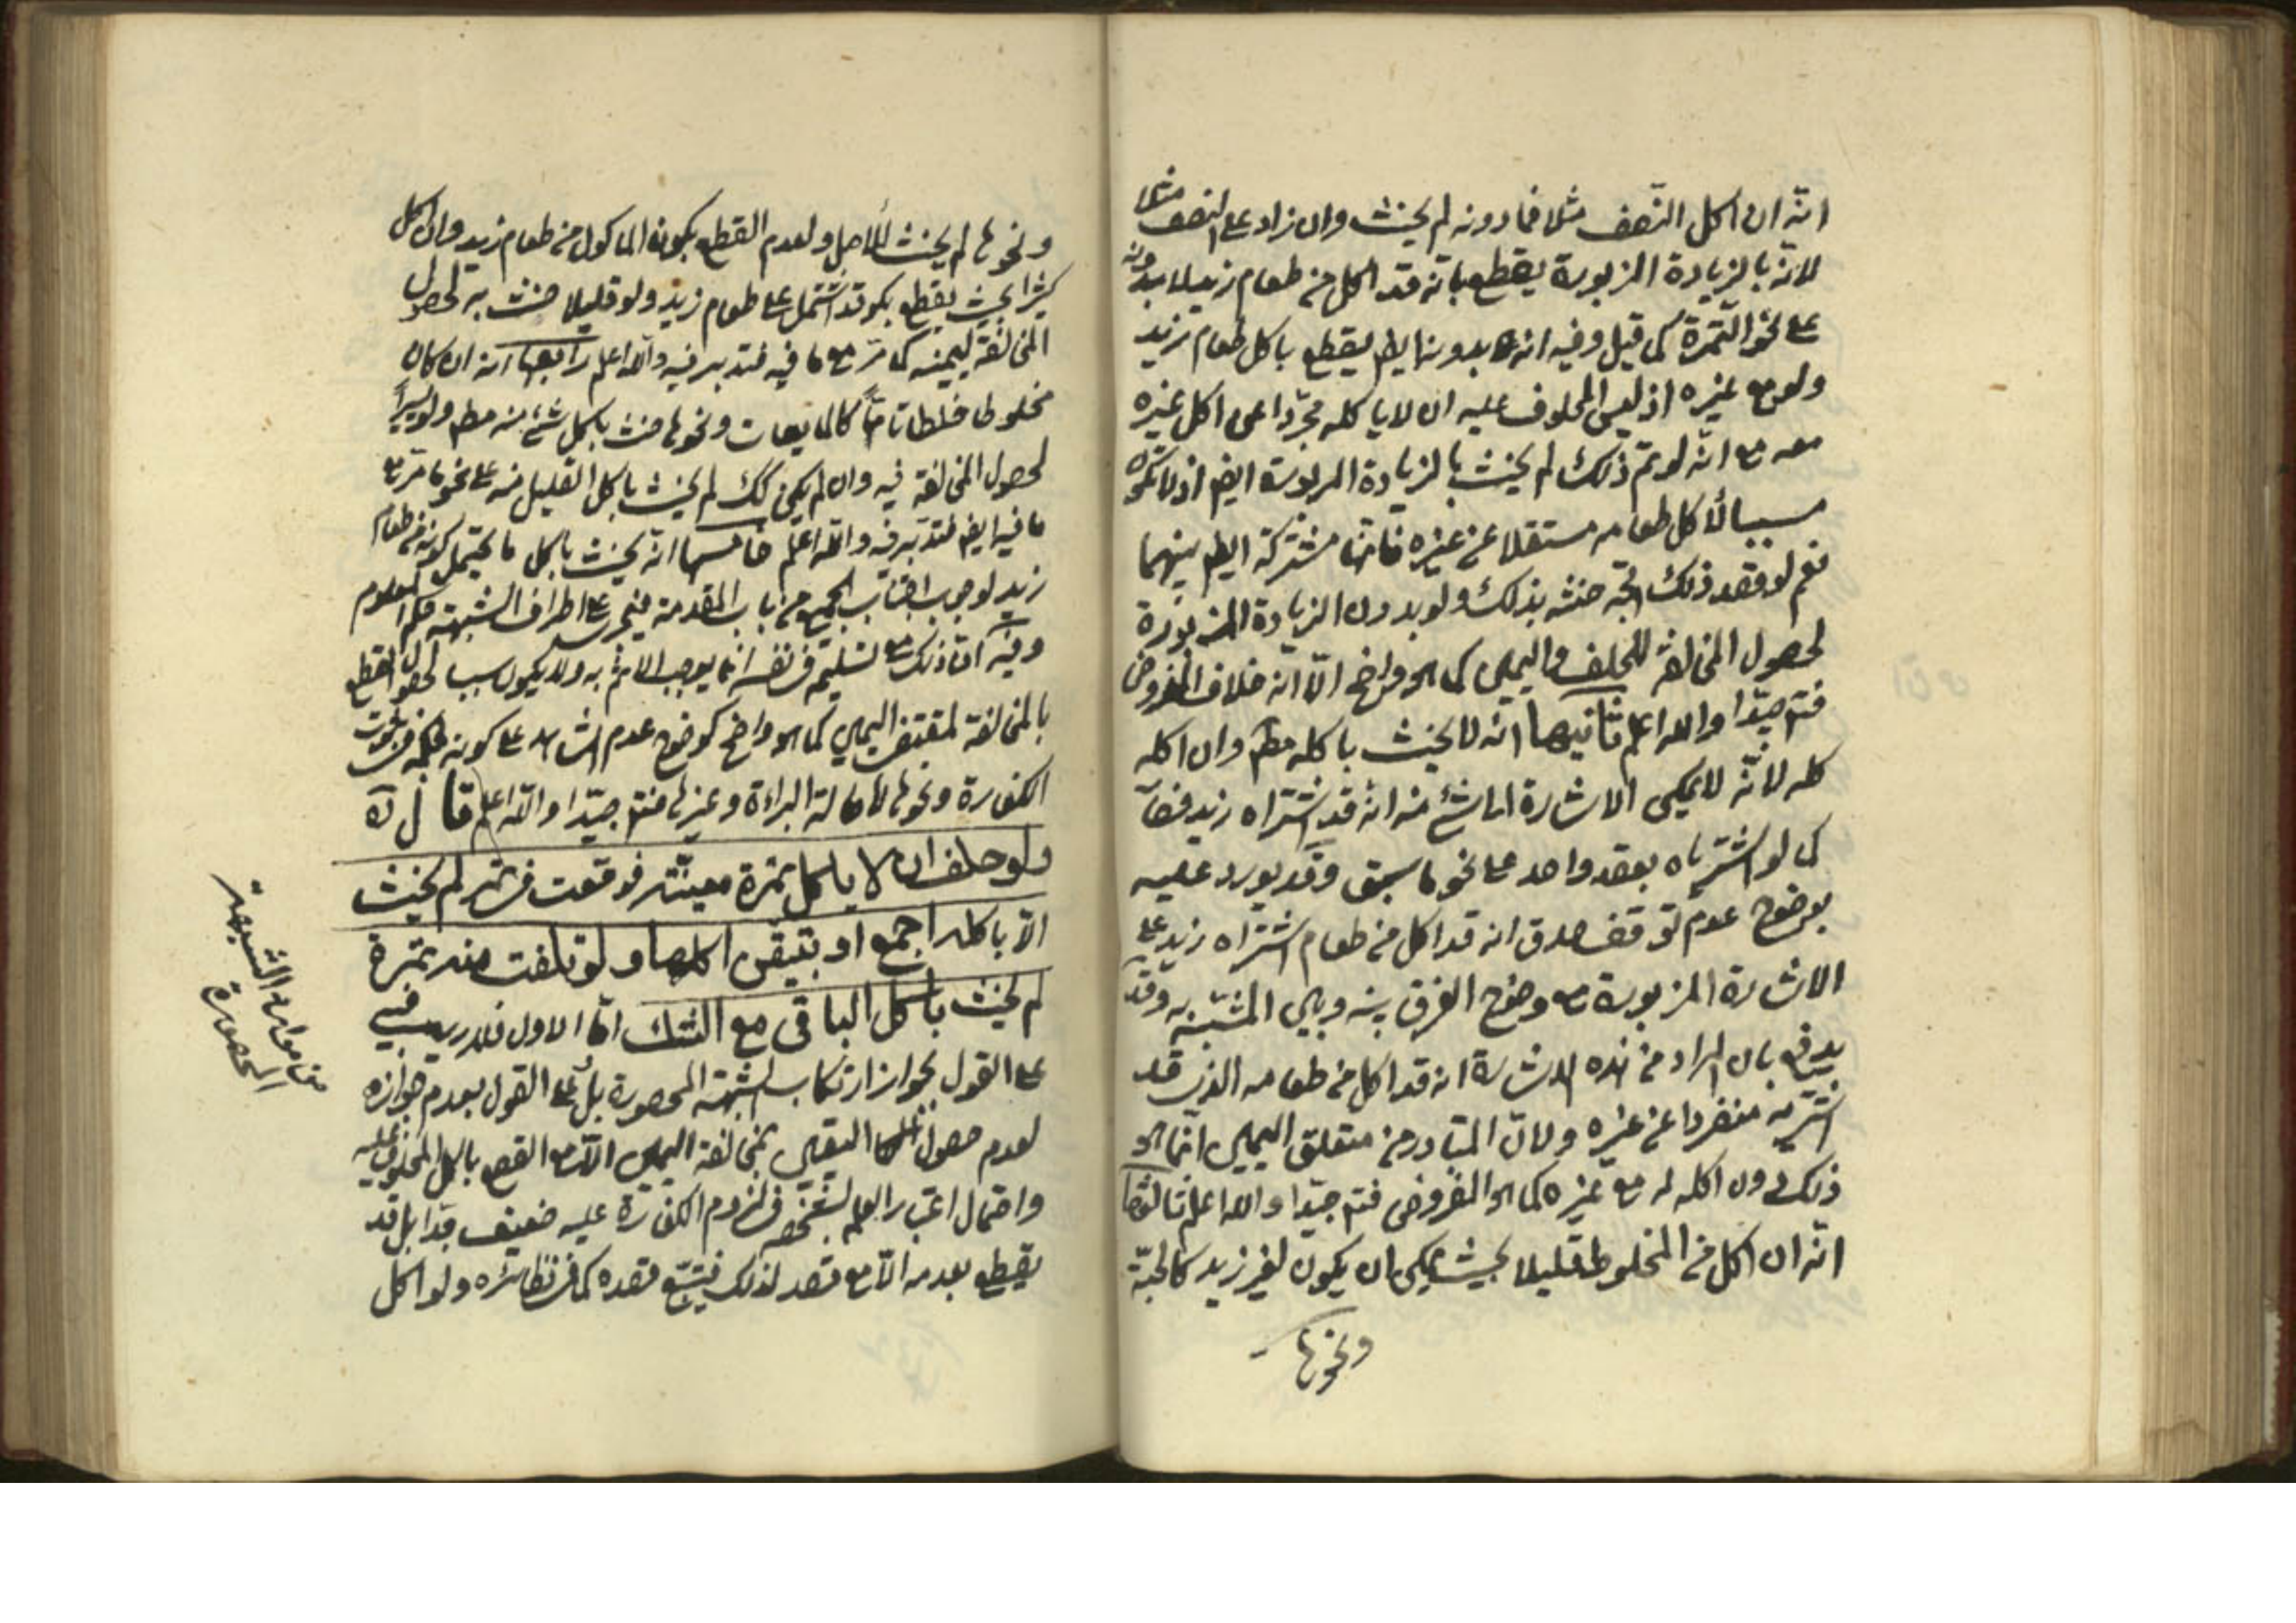 انّه ان اكل النّصف مثلا فما دونه لم يحنث وان زاد على النصف مثلا
لانّه بالزيادة المزبورة يقطع بانّه قد اكل من طعام زيد لا بدونه
على نحو التّمرة كما قيل وفيه انه بدونها ايضا يقطع باكل طعام زيد
ولو مع غيره اذ ليس المحلوف عليه ان لا ياكله مجرّدا عن اكل غيره
معه مع انّه لو تمّ ذلك لم يحنث بالزيادة المزبورة ايضا اذ لا تكون
سببا لأكل طعامه مستقلا عن غيره فانّها مشتركة ايضا بينهما
نعم لو قصد ذلك اتّجه حنثه بذلك ولو بدون الزيادة المزبورة
لحصول المخالفة للحلف واليمين كما هو واضح الّا انّه خلاف المفروض
فتم جيّدا والله اعلم ثانيها انّه لا يحنث باكله مطم وان اكله
كله لانّه لا يمكن الاشارة الى شئ منه انّه قد اشتراه زيد فصار
كما لو اشترياه بعقد واحد على نحو ما سبق وقد يورد عليه
بوضوح عدم توقف صدق انه قد اكل من طعام اشتراه زيد على
الاشارة المزبورة مع وضوح الفرق بينه وبين المشبّه به وقد
يدفع بان المراد من هذه الاشارة انه قد اكل من طعامه الذي قد
اشتريه منفردا عن غيره ولانّ المتبادر من متعلق اليمين انّما هو
ذلك دون اكله له مع غيره كما هو المفروض فتم جيّدا والله اعلم ثالثها
انّه ان اكل من المخلوط قليلا بحيث يمكن ان يكون لغير زيد كالحبّة
ونحوها
ونحوها لم يحنث للأصل ولعدم القطع بكون الماكول من طعام زيد وان اكل
كثيرا بحيث يقطع بكونه قد اشتمل على طعام زيد ولو قليلا حنث به لحصول
المخالفة ليمينه كما مرّ مع ما فيه فتدبر فيه والله اعلم رابعها انه ان كان
مخلوطا خلطا تامّا كالمايعات ونحوها حنث باكل شئ منه مطم ولو يسيراً
لحصول المخالفة فيه وان لم يكن كك لم يحنث باكل القليل منه على نحو ما مرّ مع
ما فيه ايضا فتدبّر فيه والله اعلم خامسها انّه يحنث باكل ما يحتمل كونه من طعام
زيد لوجوب اجتناب الجميع من باب المقدمة فيجري على اطراف الشبهة حكم المعلوم
وفيه انّ ذلك مع تسليمه في نفسه انما يوجب الاثم به ولا يكون سببا لحصول القطع
بالمخالفة لمقتضى اليمين كما هو واضح كوضوح عدم الشاهد على كونه كحكمه في ثبوت
الكفارة ونحوها لاصالة البراءة وغيرها فتم جيّدا والله اعلم قال ره
ولو حلف ان لا ياكل تمرة معينة فوقعت في تمر لم يحنث
الّا باكله اجمع او بتيقّن اكلها ولو تلفت منه تمرة
لم يحنث باكل الباقي مع الشك امّا الاول فلا ريب فيه
على القول بجواز ارتكاب الشبهة المحصورة بل على القول بعدم جوازه
لعدم حصول اليقين بمخالفة اليمين الّا مع القطع باكل المحلوف عليه
واحتمال اعتبار العلم بشخصه في لزوم الكفارة عليه ضعيف جدّا بل قد
يقطع بعدمه الّا مع قصد لذلك فيتّبع قصده كما في نظائره ولو اكل
من موارد الشبهة
المحصورة